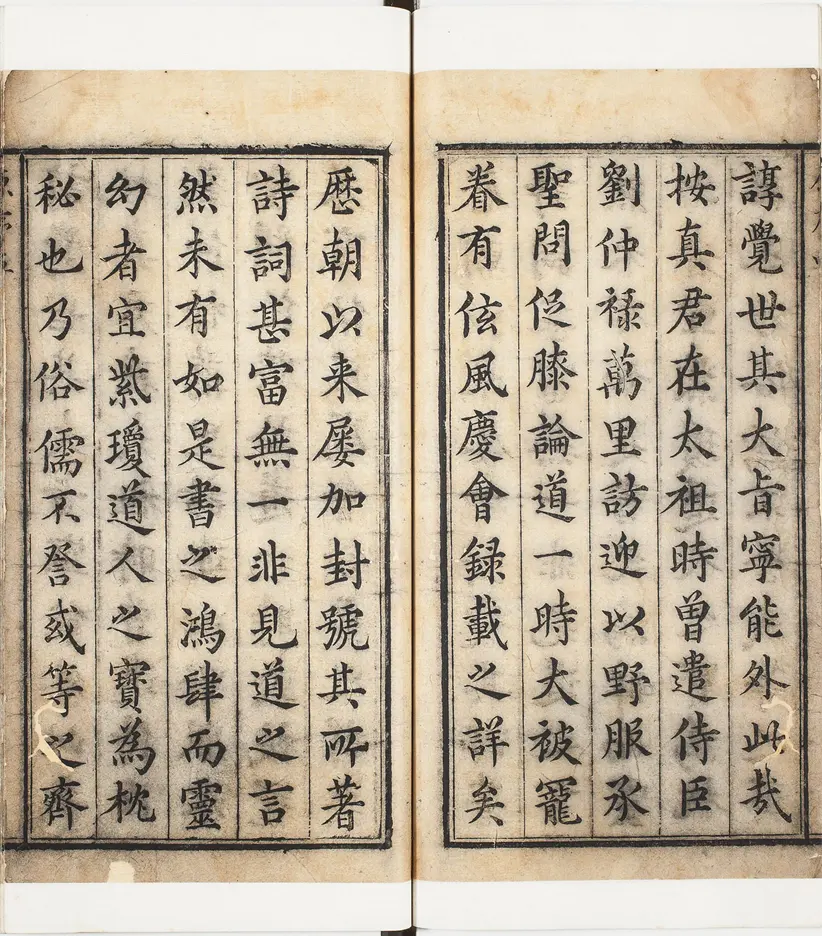 諄覺世其大旨寧能外此哉
按真君在太祖時曾遣侍臣
劉仲禄萬里訪迎以野服承
聖問促膝論道一時大被寵
眷有伭風慶會録載之詳矣
歴朝以来屡加封號其所著
詩詞甚富無一非見道之言
然未有如是書之鴻肆而靈
幻者宜紫瓊道人之寶為枕
秘也乃俗儒不詧或等之齊